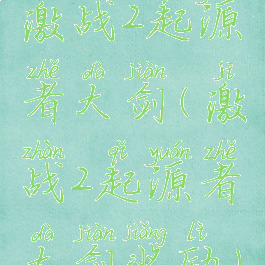 激战2起源
zhě dà jiàn jī
者大剑(激
zhàn qǐ yuán zhě
战2起源者
dà jiàn jiǎng lì
大剑奖励)